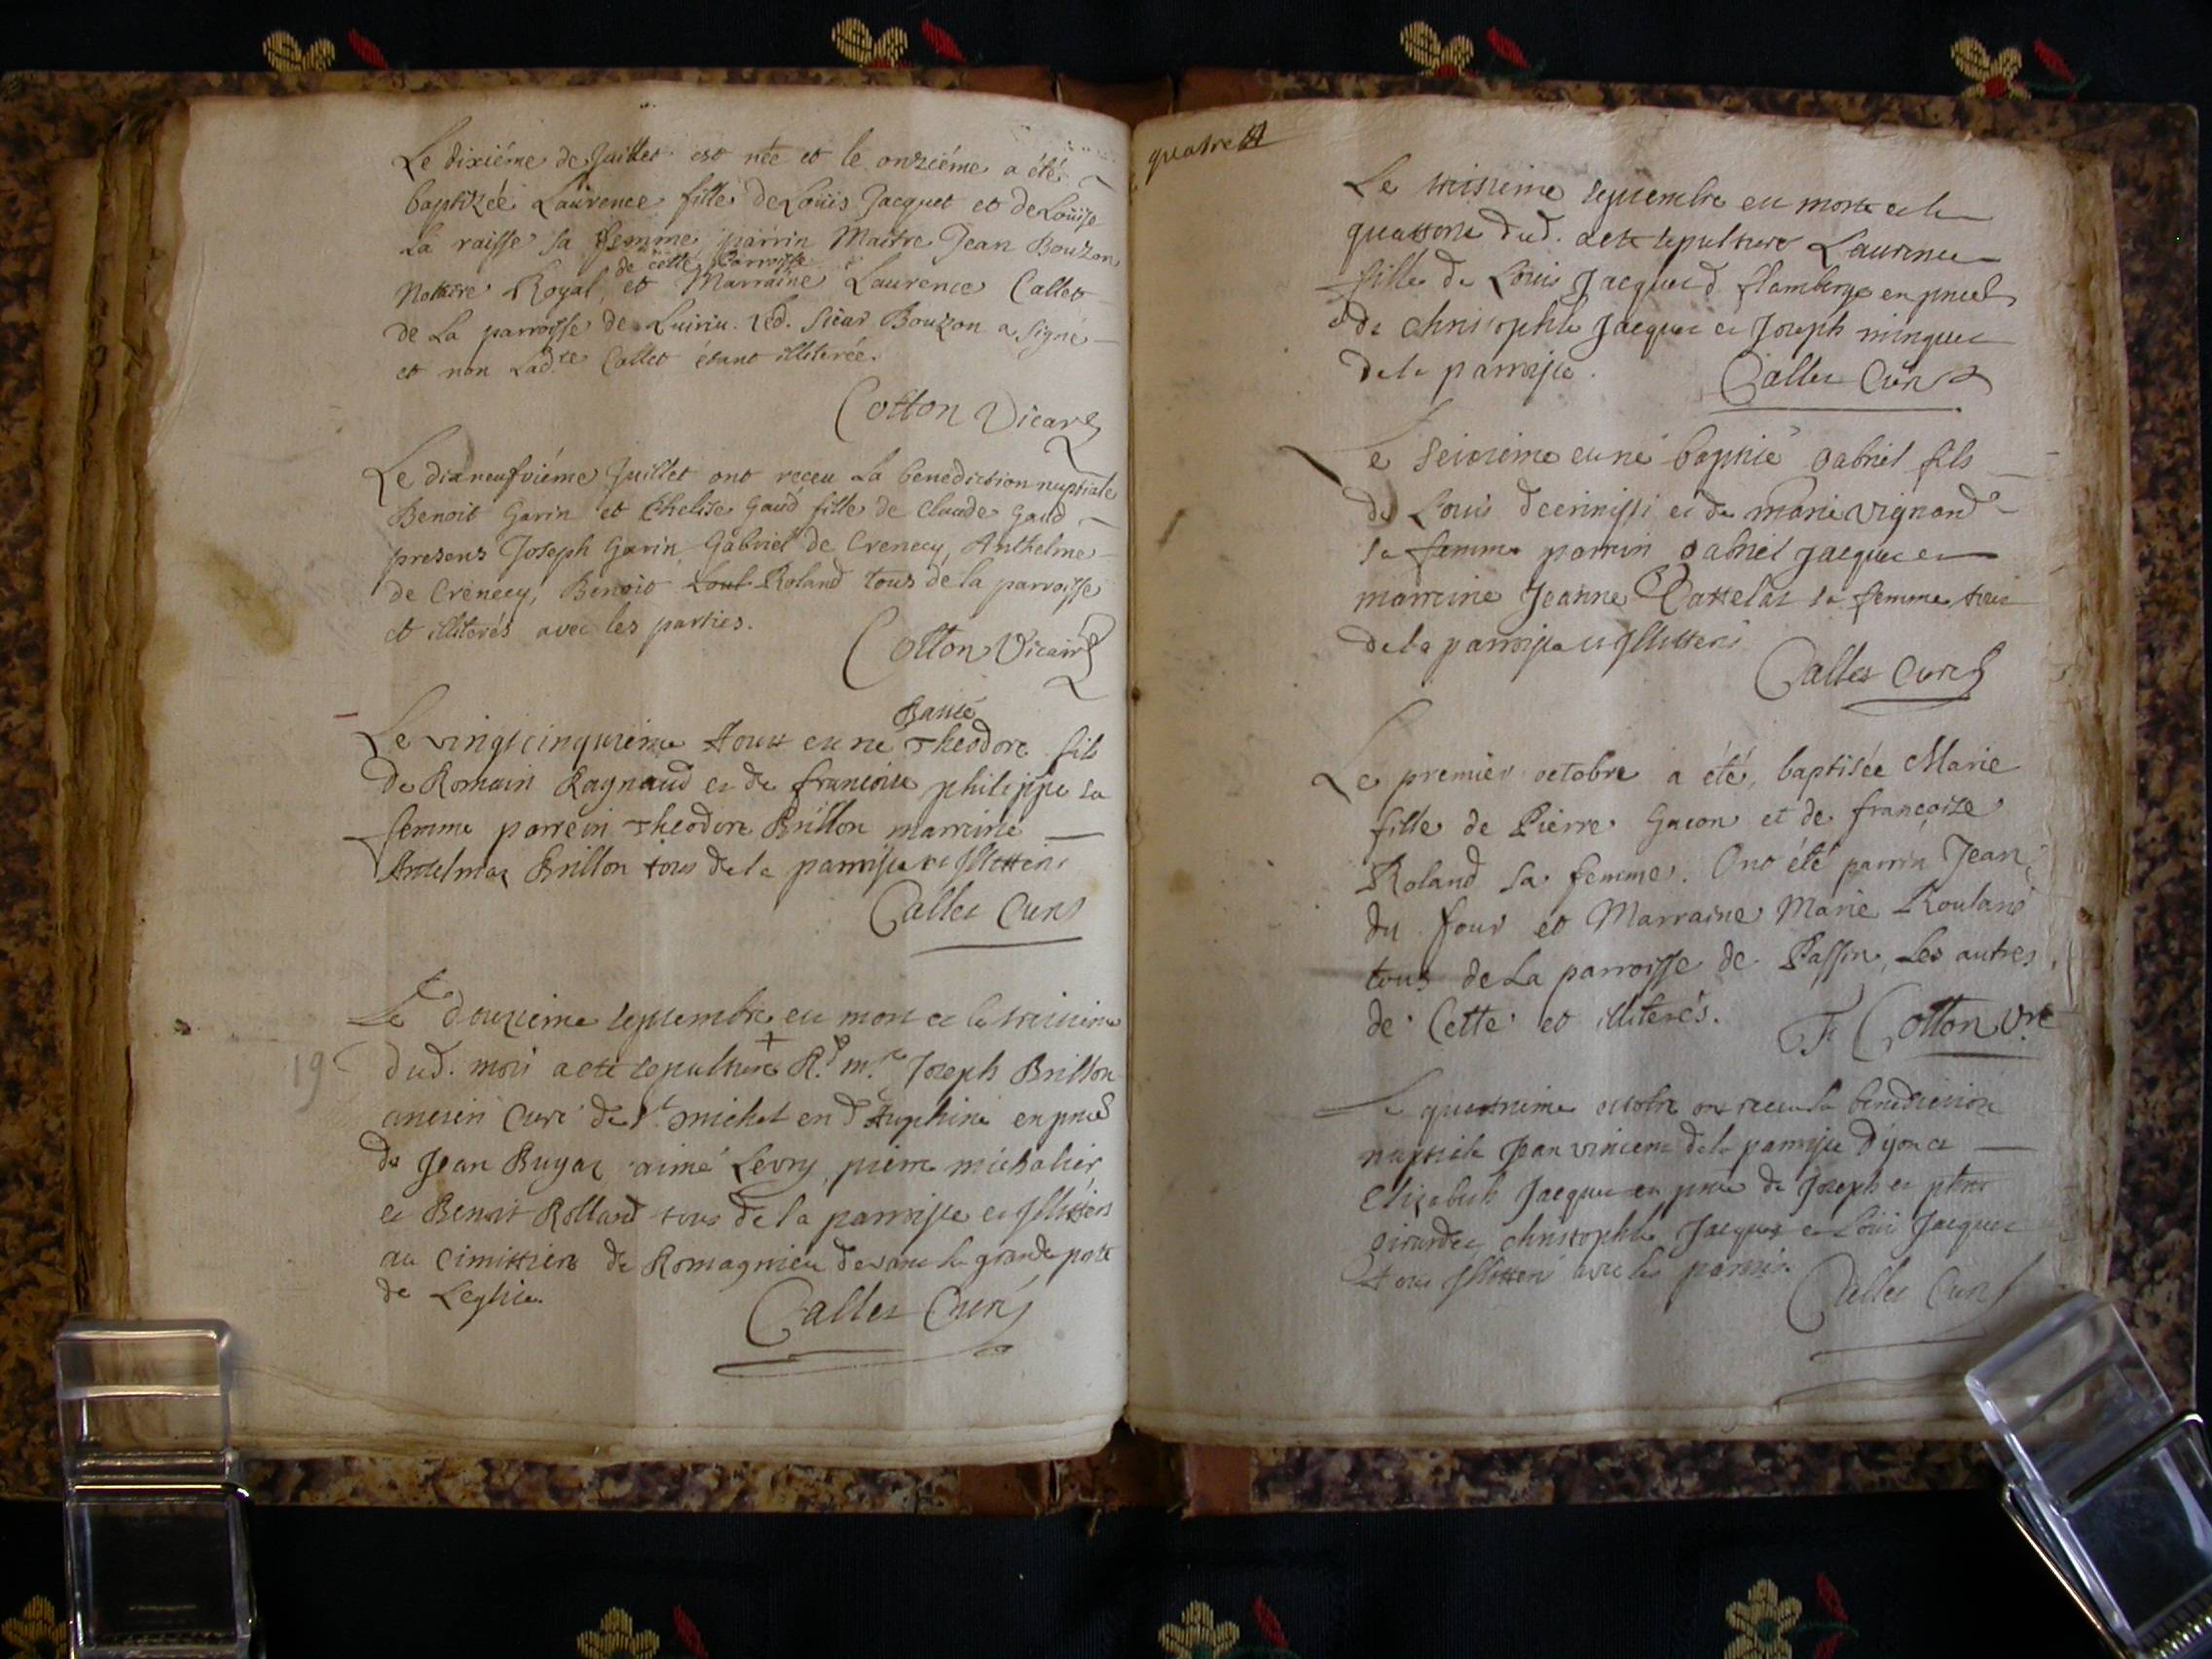 Le dixiéme de Juillet est née et le onziéme a été
baptizée Laurence fille de Loüis Jacquet et de Loüise
La raisse sa femme, parrin Maitre Jean Bouzon
de cette Parroisse
Notaire Royal, et Marraine Laurence Callet
de La parroisse de Led. Sieur Bouzon a Signé
et non Lad.te Callet étant illiterée.
Cotton Vicare
Le dixneufviéme Juillet ont receu La benediction nuptiale
Benoit Garin et Gaud fille de Claude Gaud
presens Joseph Garin, Gabriel de Crenecy, Anthelme
de Crenecy, Benoit Roland tous de la parroisse
et illiterés avec les parties.
Cotton Vicaire
Le vingtcinquieme Aoust est né Theodore fils
de Romain Ragnaud et de francoise philippe sa
femme parrein Theodore Brillon marreine
Brillon tous de la parroisse et Illitteres
Callet Curé
Le douzieme septembre est mort et le treizieme
dud. mois a ete sepulturé Rd mre Joseph Brillon
ancien Curé de St michel en Dauphiné en pnce
de Jean Buyat aimé Levry, pierre michalier,
et Benoit Rolland tous de la parroisse et Illitteres
au cimittiere de Romagnieu devant la grande porte
de Leglise.
Callet Curé
19
quatre
Le treizieme septembre est morte et le
quattorze dud. a ete sepulturée Laurence
fille de Louis Jacquet d. flamberge en pnce
de Christophle Jacquet et Joseph minguet
de la parroisse.
Callet Curé
Le Seizieme est né baptisé Gabriel fils
de Louis et de marie vignard
sa femme parrein Gabriel Jacquet et
marreine Jeanne sa femme tous
de la parroisse et Illitteres
Callet Curé
Le premier octobre a été baptisée Marie
fille de Pierre Gucon et de françoise
Roland sa femme. Ont été parrin Jean
du four et Marraine Marie Rouland
tous de La parroisse de Passin, Les autres
de Cette et illiterés.
F Cotton Vre
Le quatrieme octobre ont receu la benediction
nuptiale Jean vincent de la parroisse D'yon et
Elizabeth Jacquet en pnce de Joseph et
Girardet, Christophle Jacquet et Loüis Jacquet
tous Illitteres avec les parties.
Callet Curé